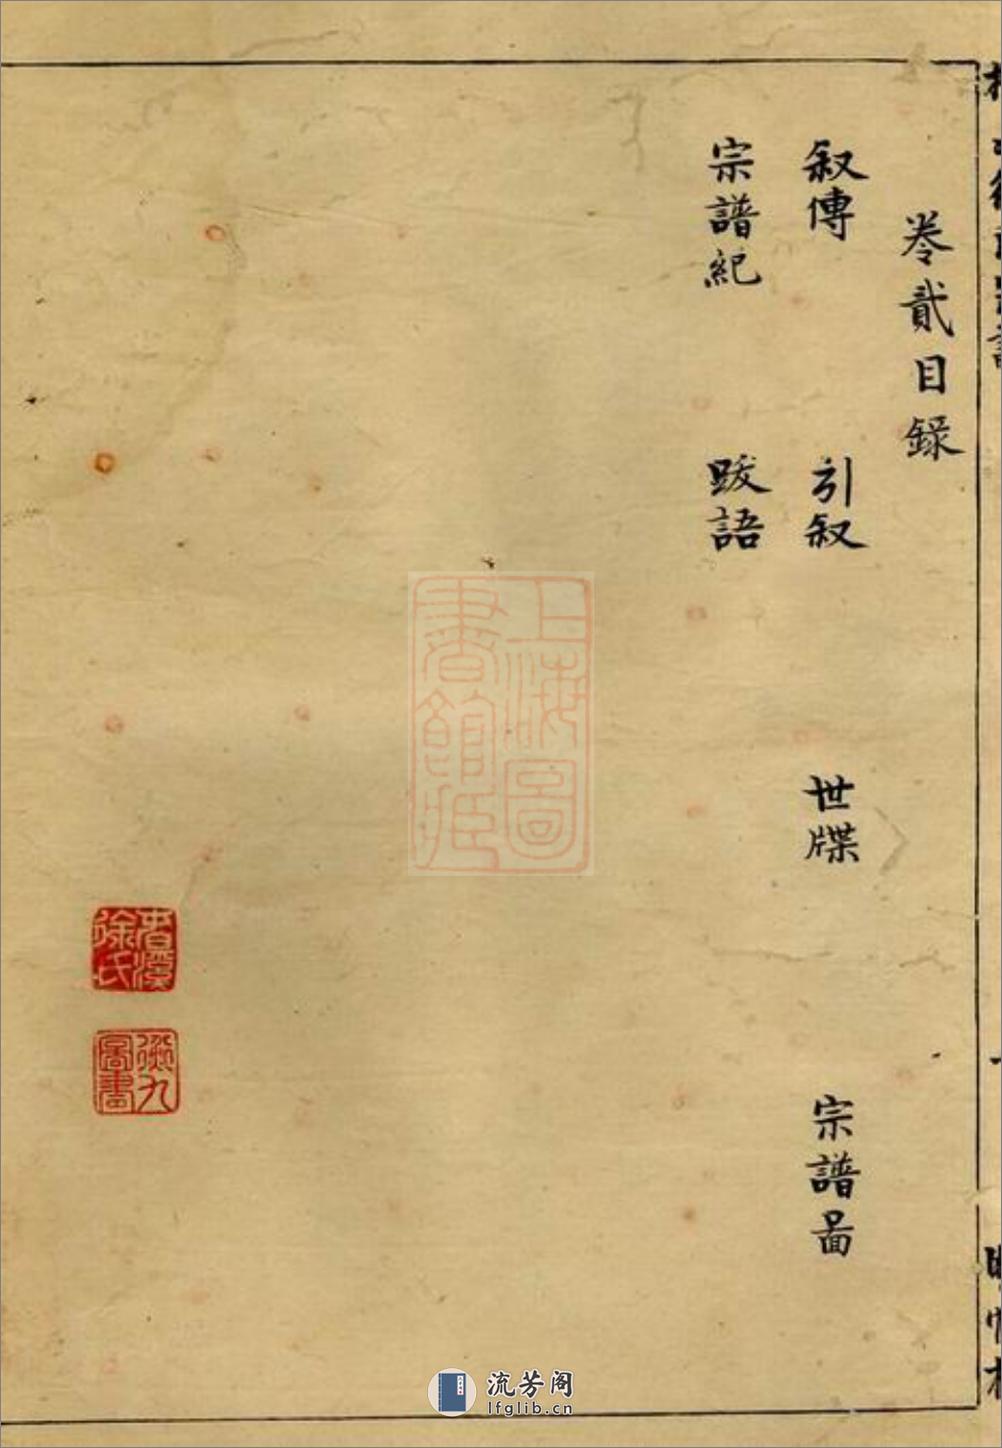 卷貳目錄
叙傳　引叙　世牒　宗譜啚
宗譜紀　跋語
上海圖
書館藏
徐氏
流芳阁
lfglib.cn